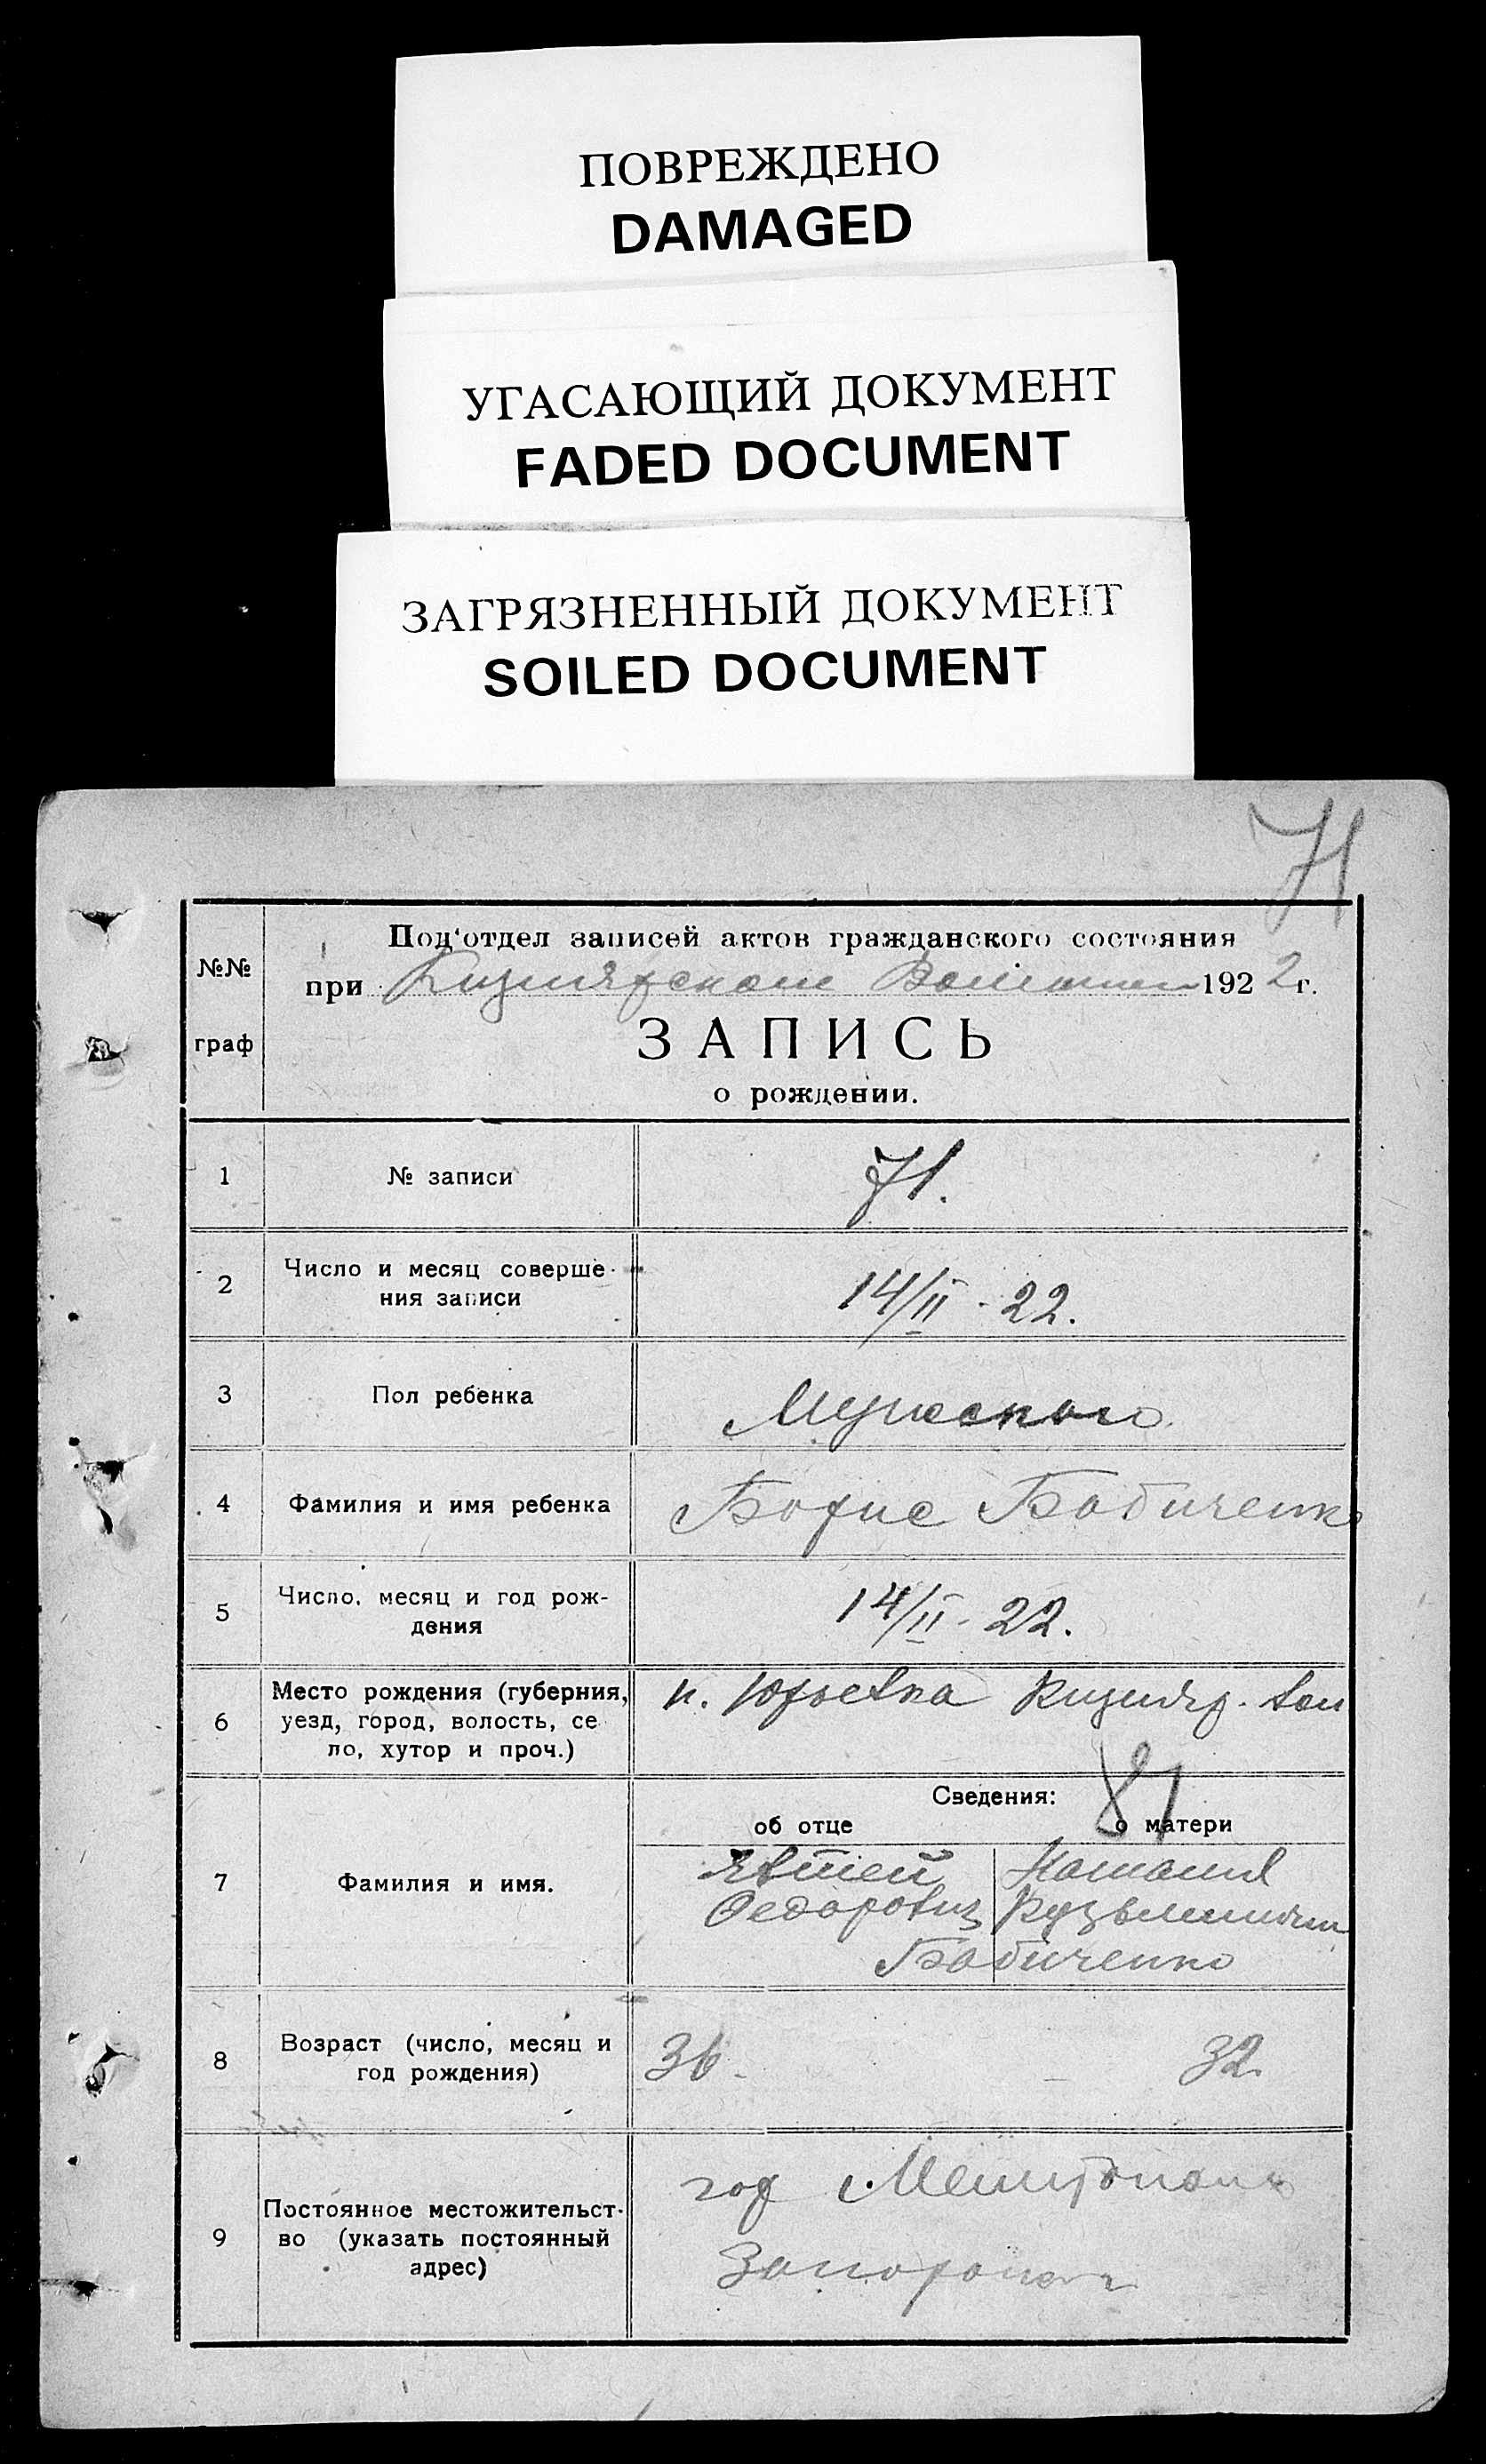 ПОВРЕЖДЕНО
DAMAGED
УГАСАЮЩИЙ ДОКУМЕНТ
FADED DOCUMENT
ЗАГРЯЗНЕННЫЙ ДОКУМЕНТ
SOILED DOCUMENT
71
№№ граф
Под'отдел записей актов гражданского состояния
при Кизиярском 1922 г.
ЗАПИСЬ
о рождении.
1 № записи 71.
2 Число и месяц соверше-
ния записи 14/II · 22.
3 Пол ребенка Мужского
4 Фамилия и имя ребенка Борис Бабиченко
5 Число, месяц и год рож-
дения 14/II · 22.
6 Место рождения (губерния,
уезд, город, волость, се
ло, хутор и проч.) п. Юрьевка Кизияр. вол
Сведения:
81
об отце о матери
7 Фамилия и имя.
Наталия
Федорович
Бабиченко
8 Возраст (число, месяц и
год рождения) 36 - 32.
9 Постоянное местожительст-
во (указать постоянный
адрес)
гор Мелитополь